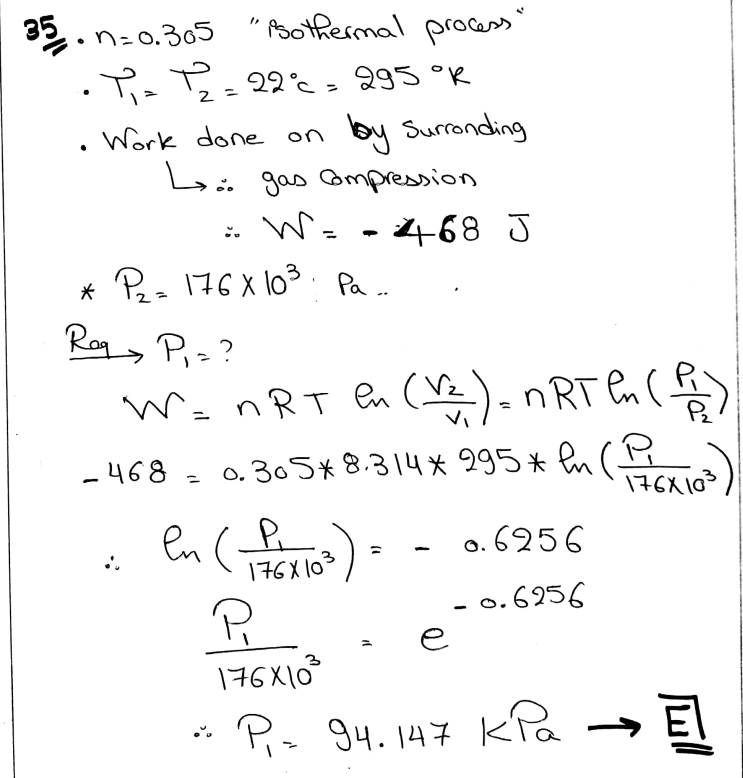 35. • n=0.305 "Isothermal process"
• T₁ = T₂ = 22°c = 295 °K
• Work done on by Surronding
↳ ∴ gas Compression
∴ W = - 468 J
* P₂ = 176 X 10³ Pa ..
Req → P₁ = ?
W = nRT ln (V₂/V₁) = nRT ln (P₁/P₂)
- 468 = 0.305 * 8.314 * 295 * ln (P₁/176X10³)
∴ ln (P₁/176X10³) = - 0.6256
P₁/176X10³ = e^-0.6256
∴ P₁ = 94.147 kPa → E